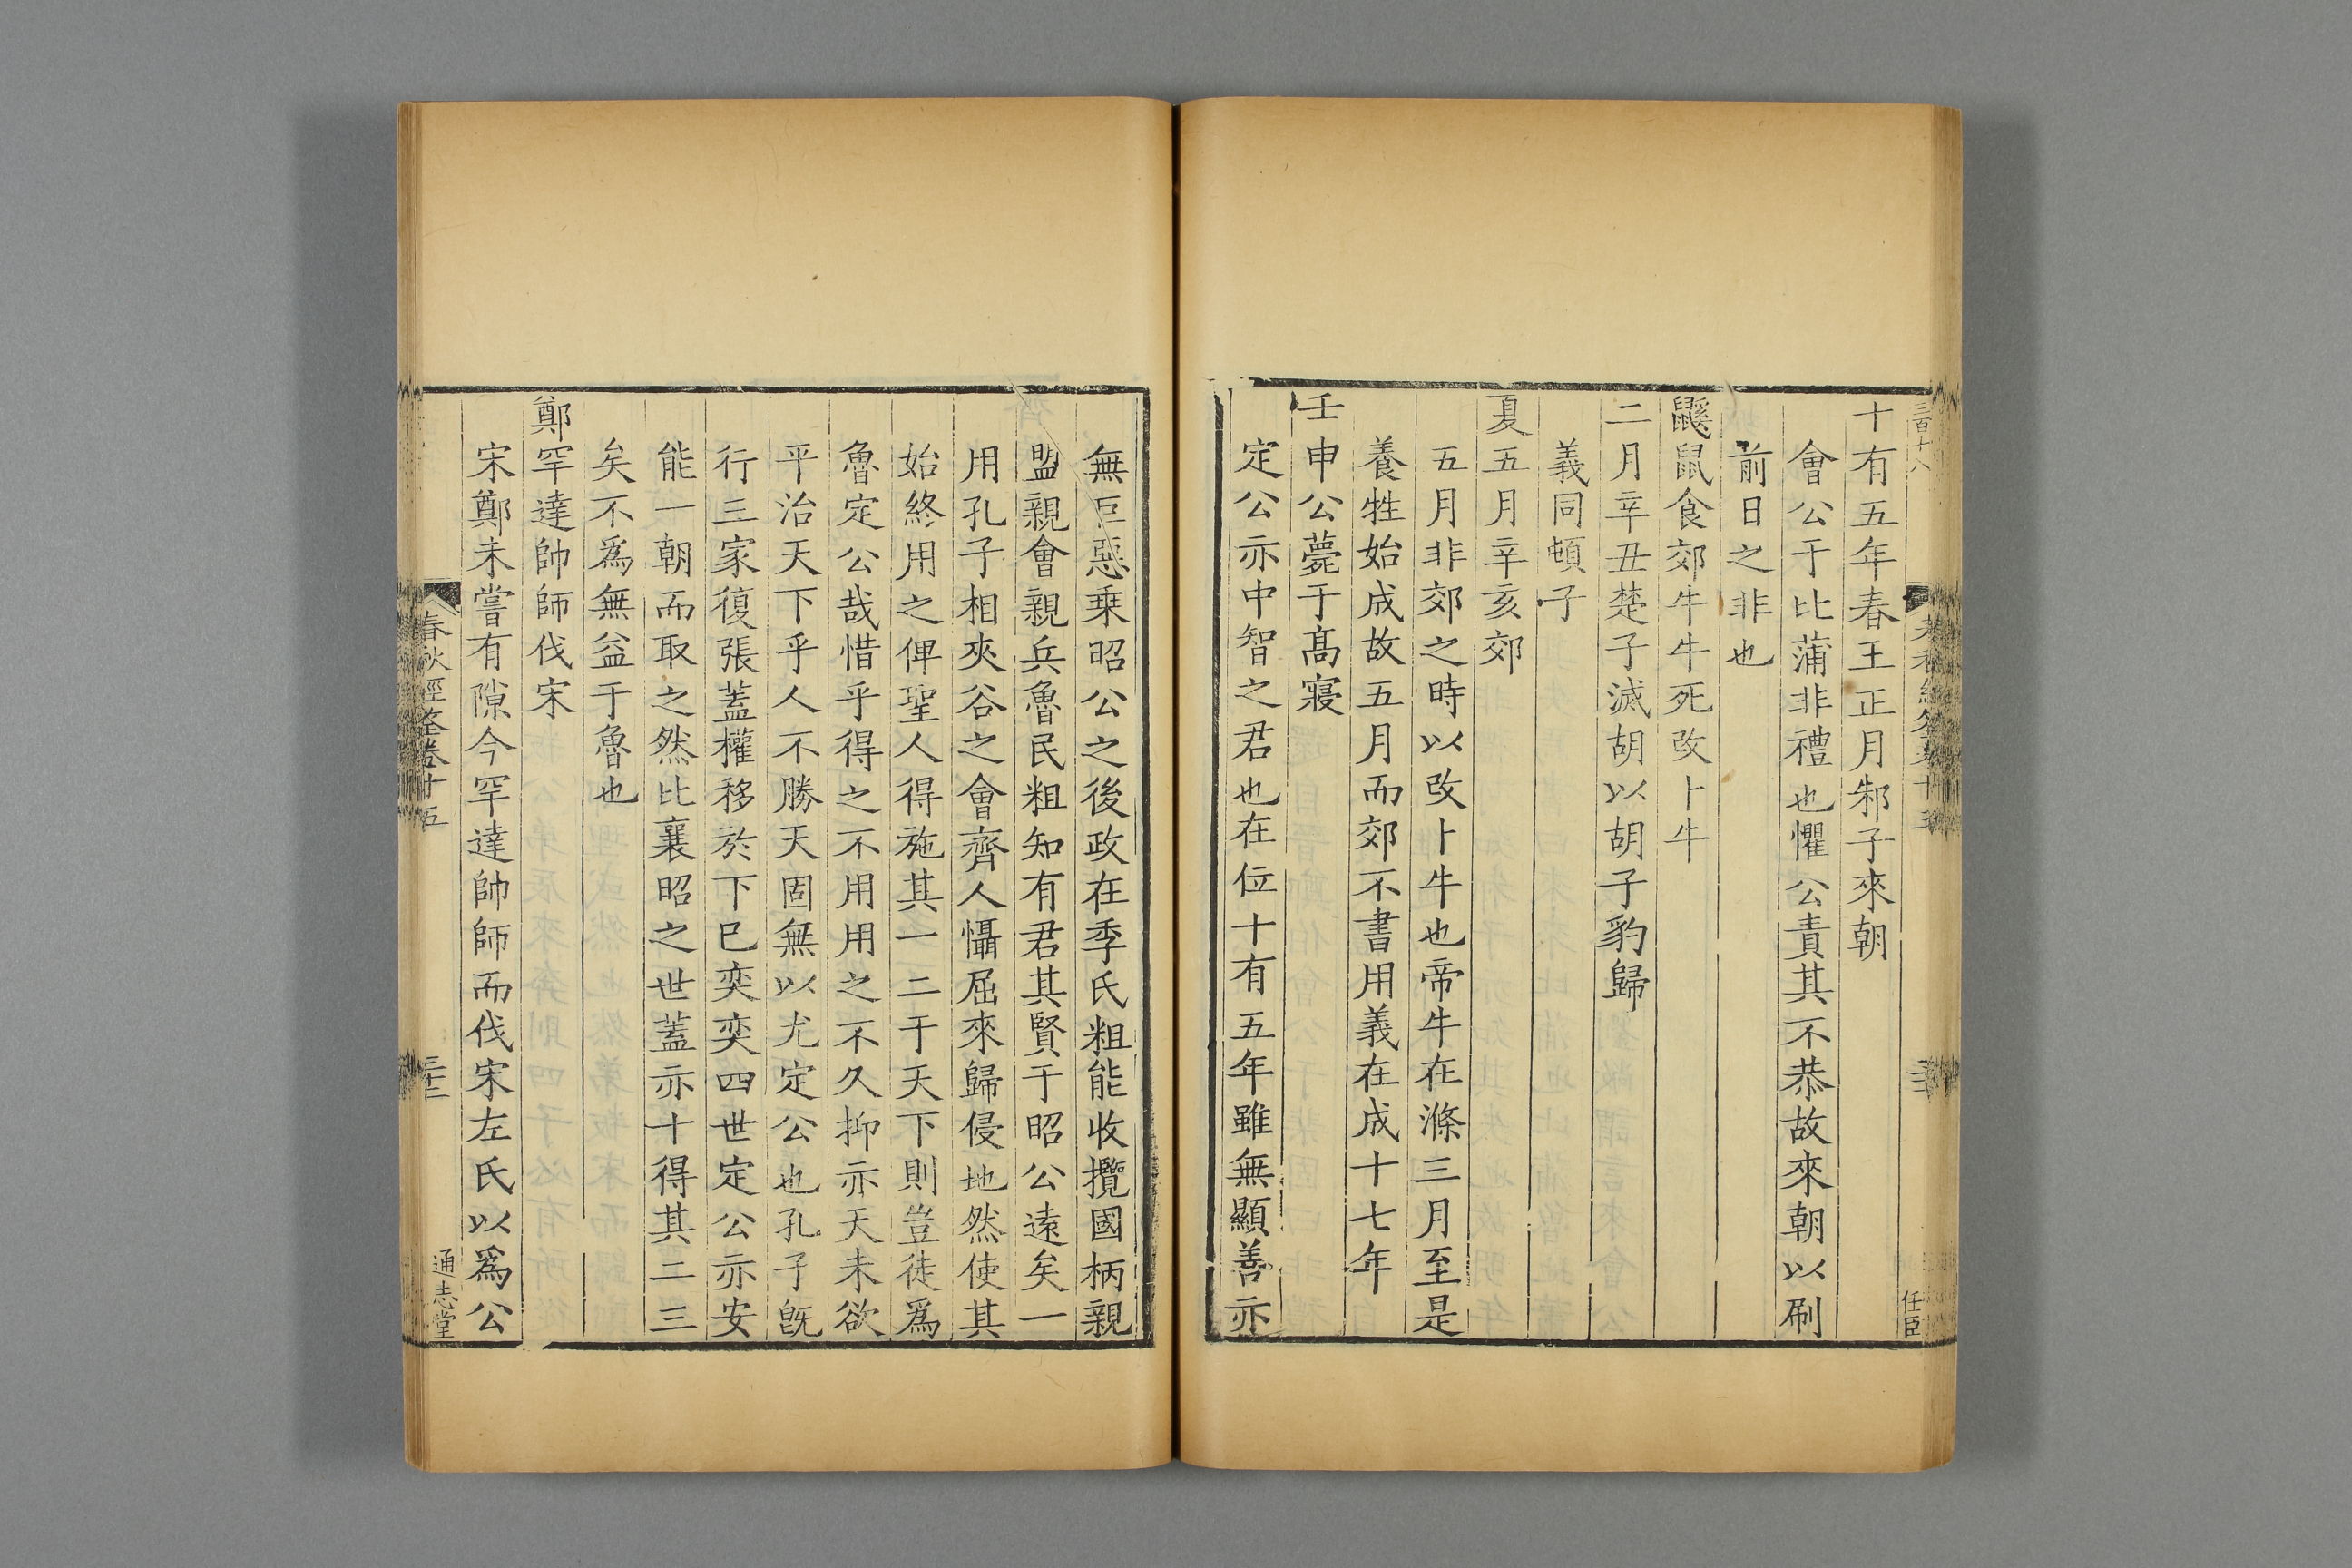 三百十八
任臣
十有五年春王正月邾子來朝
會公于比蒲非禮也懼公責其不恭故來朝以刷
前日之非也
鼷鼠食郊牛牛死改卜牛
二月辛丑楚子滅胡以胡子豹歸
義同頓子
夏五月辛亥郊
五月非郊之時以改卜牛也帝牛在滌三月至是
養牲始成故五月而郊不書用義在成十七年
壬申公薨于高寢
定公亦中智之君也在位十有五年雖無顯善亦
無巨惡乗昭公之後政在季氏粗能收攬國柄親
盟親會親兵魯民粗知有君其賢于昭公遠矣一
用孔子相夾谷之會齊人懾屈來歸侵地然使其
始終用之俾聖人得施其一二于天下則豈徒爲
魯定公哉惜乎得之不用用之不久抑亦天未欲
平治天下乎人不勝天固無以尤定公也孔子旣
行三家復張蓋權移於下已奕奕四世定公亦安
能一朝而取之然比襄昭之世蓋亦十得其二三
矣不爲無益于魯也
鄭罕達帥師伐宋
宋鄭未嘗有隙今罕達帥師而伐宋左氏以爲公
春秋經筌卷十五
通志堂